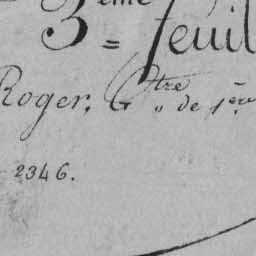 3ème = feuil
Roger, Gtre " de 1ère
2346.